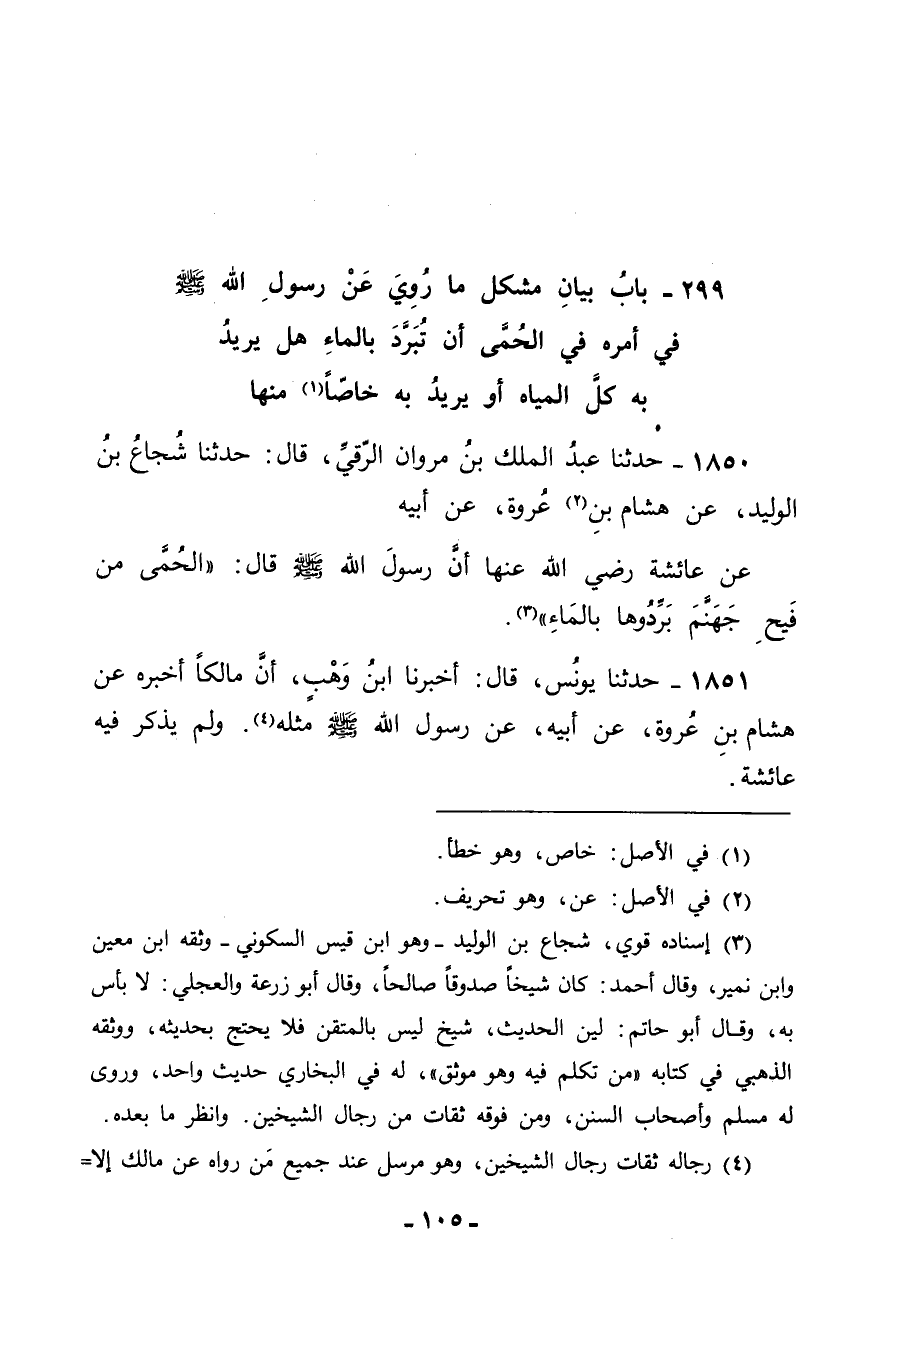 ٢٩٩ ـ بابُ بيانِ مشكل ما رُوِيَ عَنْ رسولِ الله ﷺ
في أمره في الحُمَّى أن تُبَرَّدَ بالماءِ هل يريدُ
به كلَّ المياه أو يريدُ به خاصّاً(١) منها
١٨٥٠ ـ حدثنا عبدُ الملك بنُ مروان الرّقيِّ، قال: حدثنا شُجاعُ بنُ
الوليد، عن هشام بنِ(٢) عُروة، عن أبيه
عن عائشة رضي الله عنها أنَّ رسولَ الله ﷺ قال: «الحُمَّى من
فَيحِ جَهَنَّمَ بَرِّدُوها بالمَاءِ»(٣).
١٨٥١ ـ حدثنا يونُس، قال: أخبرنا ابنُ وَهْبٍ، أنَّ مالكاً أخبره عن
هشام بنِ عُروة، عن أبيه، عن رسول الله ﷺ مثله(٤). ولم يذكر فيه
عائشة.
(١) في الأصل: خاص، وهو خطأ.
(٢) في الأصل: عن، وهو تحريف.
(٣) إسناده قوي، شجاع بن الوليد ـ وهو ابن قيس السكوني ـ وثقه ابن معين
وابن نمير، وقال أحمد: كان شيخاً صدوقاً صالحاً، وقال أبو زرعة والعجلي: لا بأس
به، وقال أبو حاتم: لين الحديث، شيخ ليس بالمتقن فلا يحتج بحديثه، ووثقه
الذهبي في كتابه «من تكلم فيه وهو موثق»، له في البخاري حديث واحد، وروى
له مسلم وأصحاب السنن، ومن فوقه ثقات من رجال الشيخين. وانظر ما بعده.
(٤) رجاله ثقات رجال الشيخين، وهو مرسل عند جميع مَن رواه عن مالك إلا=
ـ ١٠٥ ـ